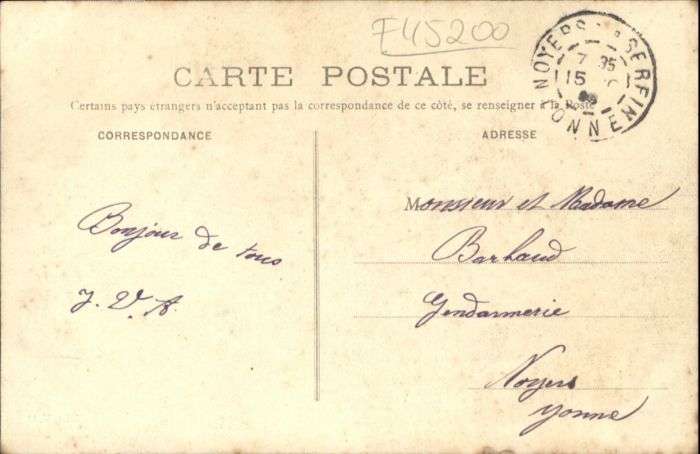 F45200
NOYERS SUR SEREIN
7 35
15
YONNE
CARTE POSTALE
Certains pays étrangers n'acceptant pas la correspondance de ce côté, se renseigner à la Poste
CORRESPONDANCE
Bonjour de tous
J. V. A.
ADRESSE
Monsieur et Madame
Barbaud
Gendarmerie
Noyers
Yonne